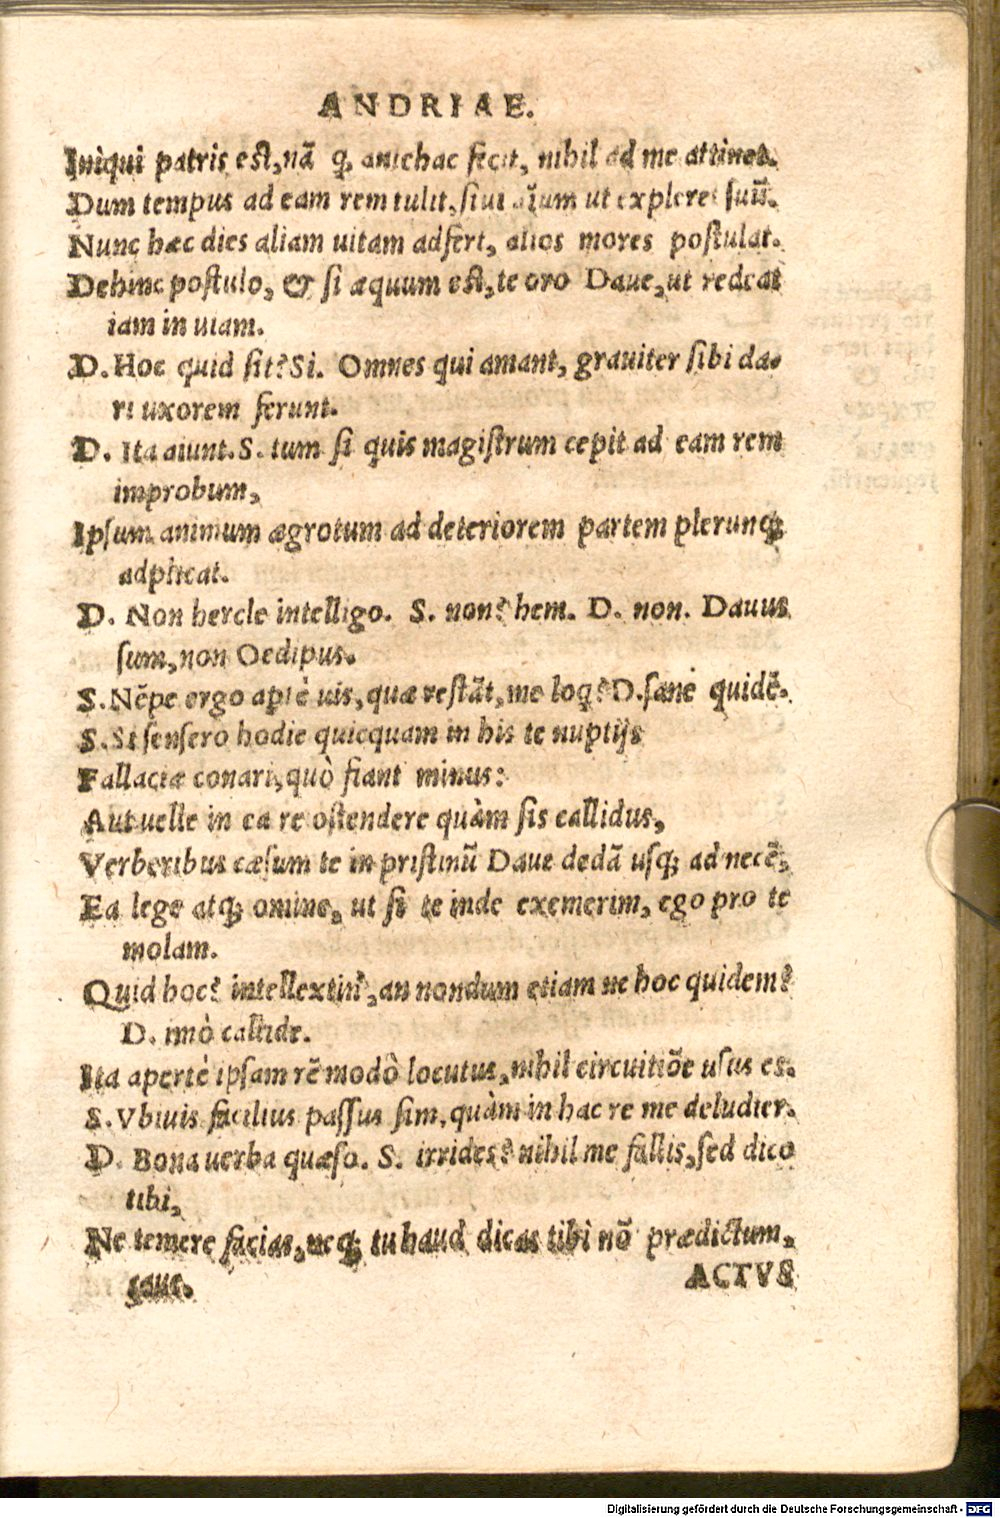 ANDRIAE.
Iniqui patris est,nā q̨ antehac fecit, nihil ad me attinet.
Dum tempus ad eam rem tulit, siui aīum ut expleret suū.
Nunc hæc dies aliam uitam adfert, alios mores postulat.
Dehinc postulo, & si æquum est,te oro Daue,ut redeat
iam in uiam.
D.Hoc quid sit?Si. Omnes qui amant, grauiter sibi da-
ri uxorem ferunt.
D. Ita aiunt.S. tum si quis magistrum cepit ad eam rem
improbum,
Ipsum animum ægrotum ad deteriorem partem plerunq;
adplicat.
D. Non hercle intelligo. S. non? hem. D. non. Dauus
sum,non Oedipus.
S.Nēpe ergo aptè uis,quæ restāt,me loq?D.sanè quidē.
S.Si sensero hodie quicquam in his te nuptijs
Fallaciæ conari,quò fiant minus:
Aut uelle in ea re ostendere quàm sis callidus,
Verberibus cæsum te in pristinū Daue dedā usq; ad necē,
Ea lege atq; omine, ut si te inde exemerim, ego pro te
molam.
Quid hoc? intellextin?,an nondum etiam ne hoc quidem?
D. imò callide.
Ita apertè ipsam rē modò locutus,nihil circuitiōe usus es.
S.Vbiuis facilius passus sim,quàm in hac re me deludier.
D. Bona uerba quæso. S. irrides? nihil me fallis,sed dico
tibi,
Ne temere facias,neq; tu haud dicas tibi nō prædictum,
caue.
ACTVS
Digitalisierung gefördert durch die Deutsche Forschungsgemeinschaft - DFG